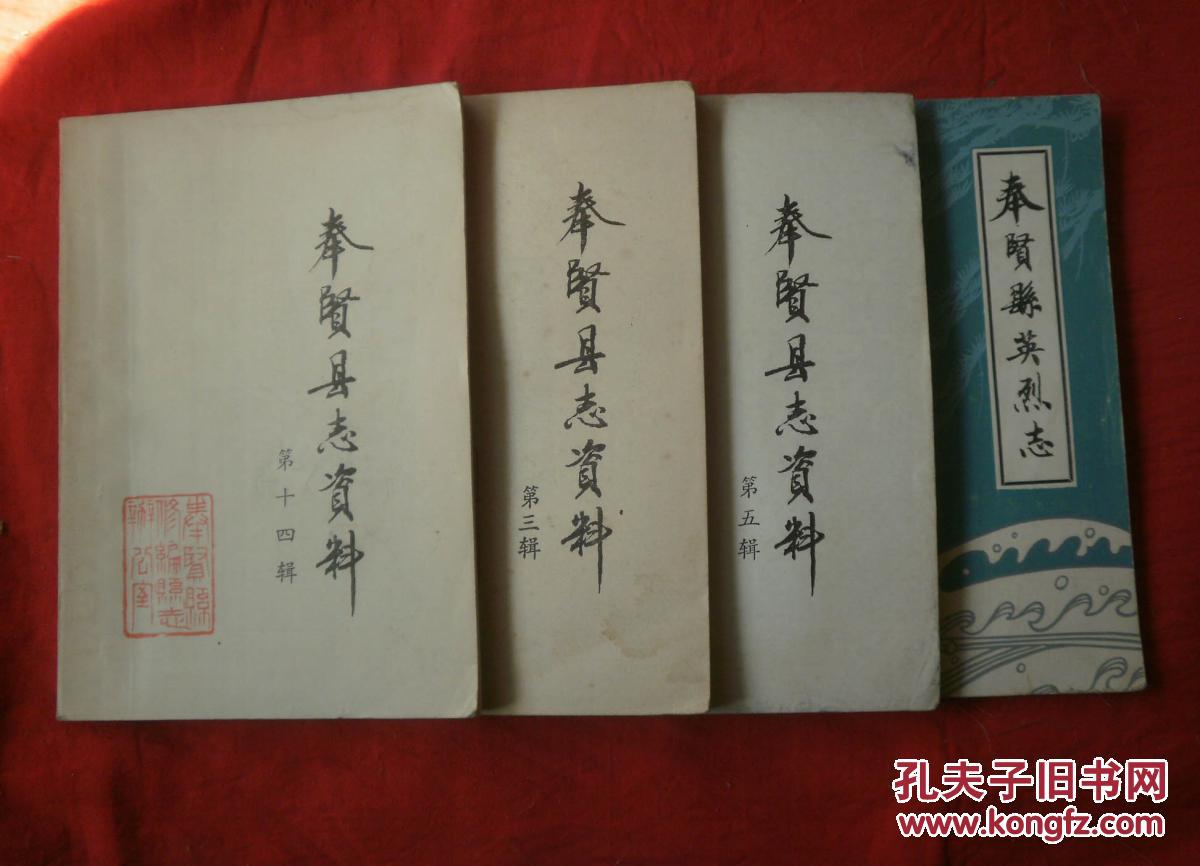 奉賢县志資料
第十四辑
奉賢縣
修編縣志
辦公室
奉賢县志資料
第三辑
奉賢县志資料
第五辑
奉賢縣英烈志
孔夫子旧书网
www.kongfz.com